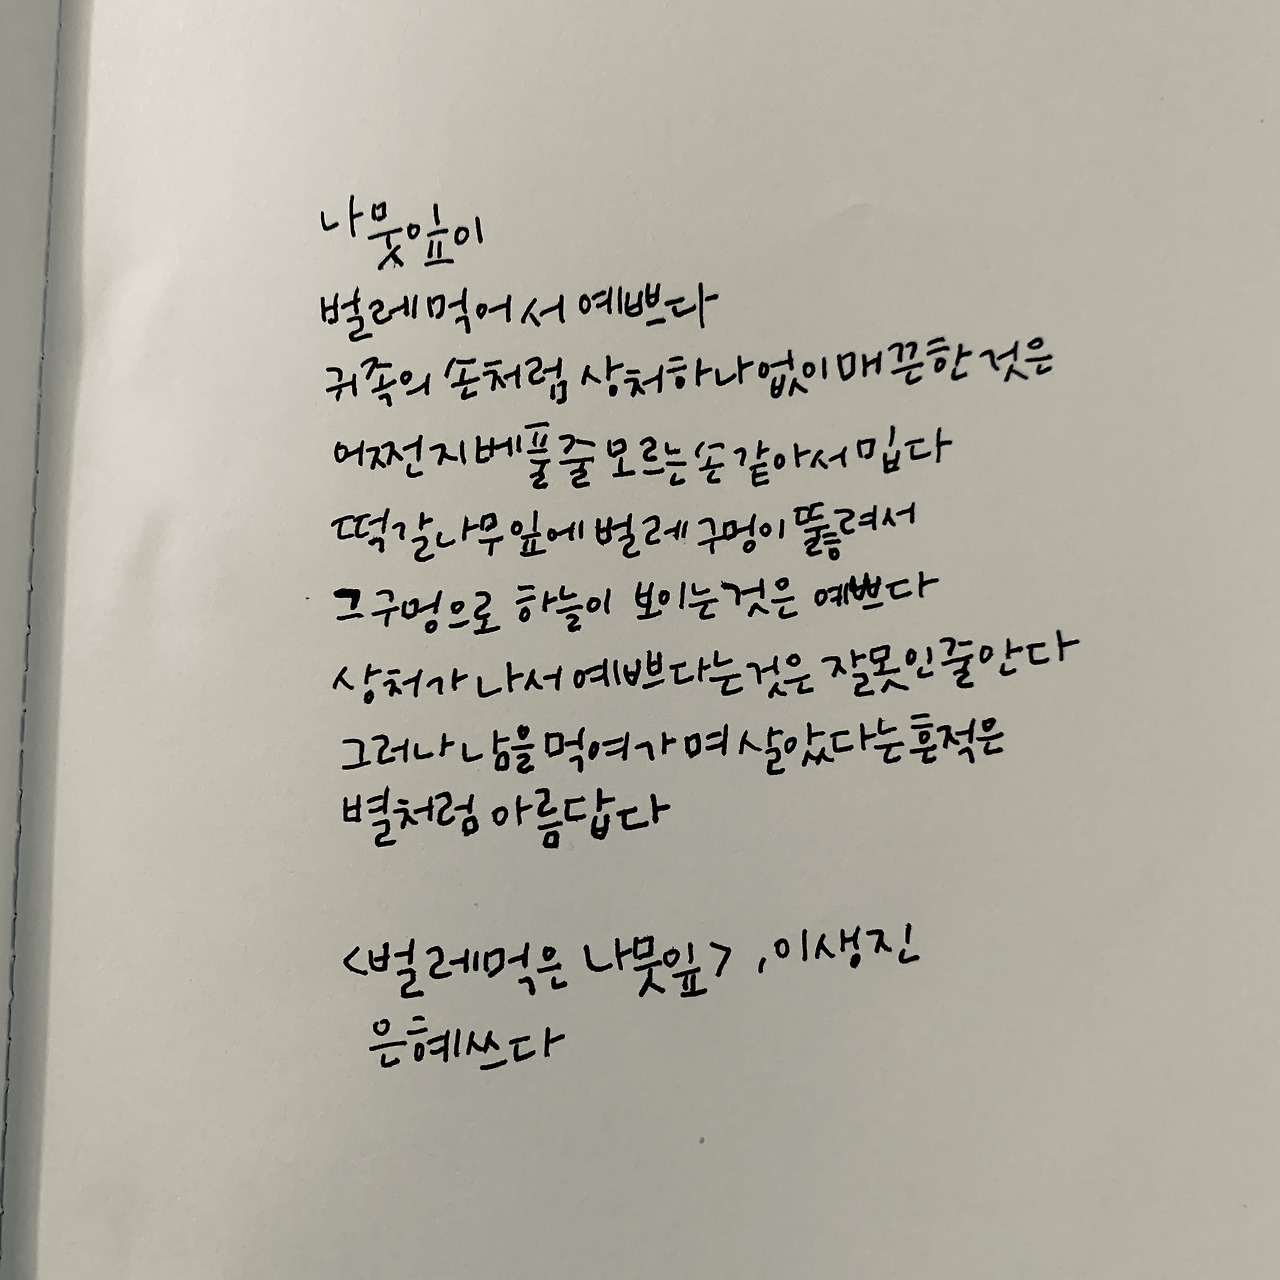 나뭇잎이
벌레먹어서 예쁘다
귀족의 손처럼 상처하나없이 매끈한 것은
어쩐지 베풀 줄 모르는 손 같아서 밉다
떡갈나무잎에 벌레 구멍이 뚫려서
그 구멍으로 하늘이 보이는 것은 예쁘다
상처가 나서 예쁘다는 것은 잘못인 줄 안다
그러나 남을 먹여가며 살았다는 흔적은
별처럼 아름답다
<벌레먹은 나뭇잎> , 이생진
은혜쓰다